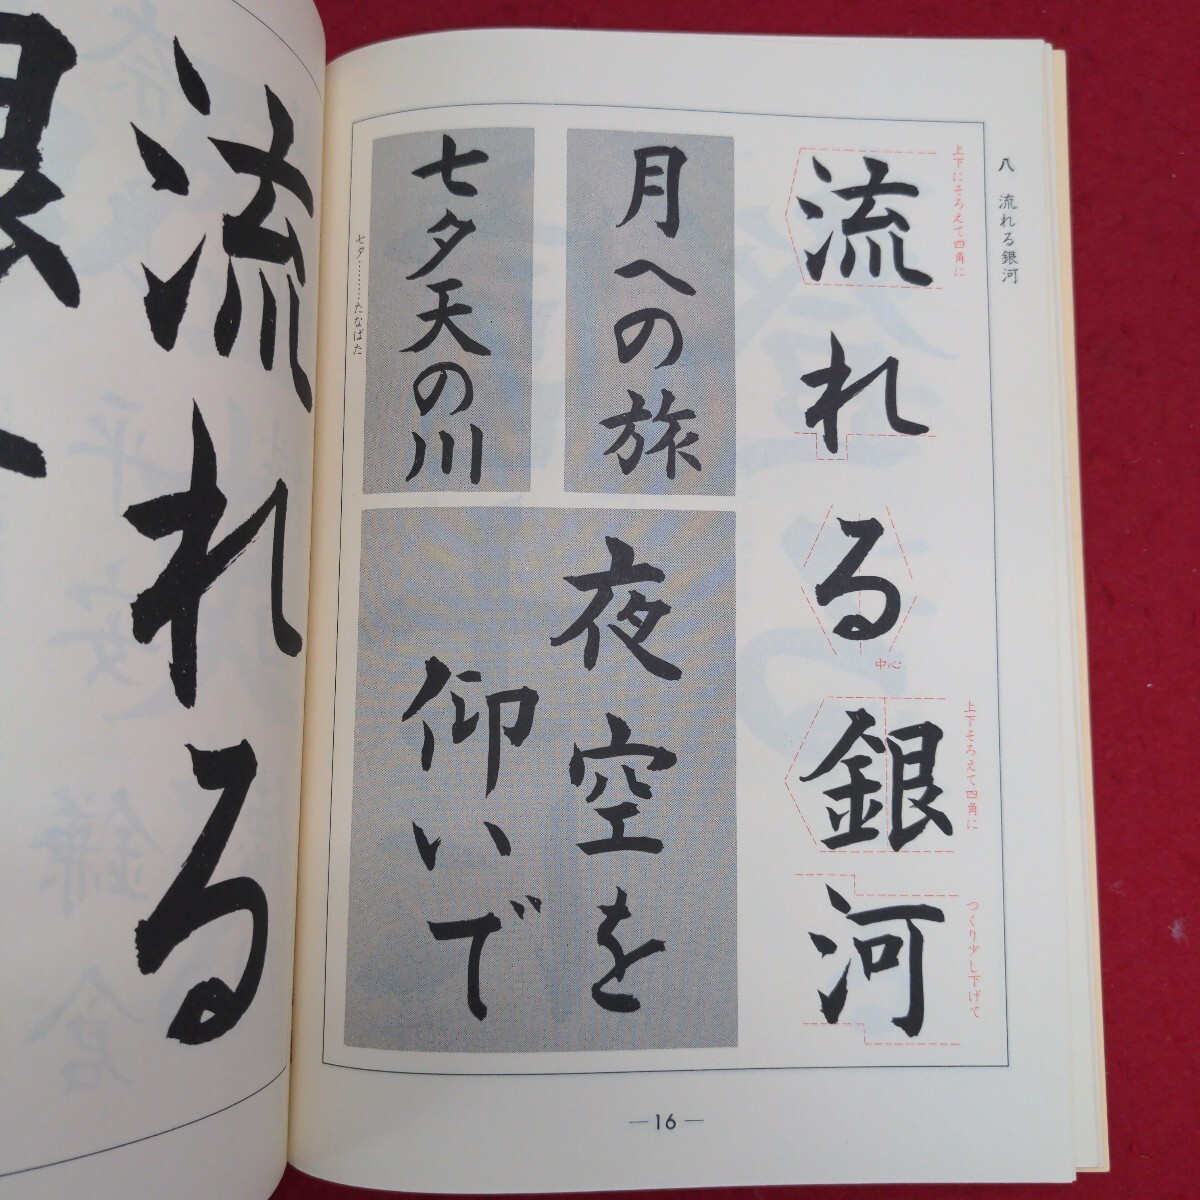 八 流れる銀河
上下にそろえて四角に
流れる銀河
中心
上下そろえて四角に
つくり少し下げて
月への旅
七夕天の川
七夕………たなばた
夜空を
仰いで
—16—
流れる